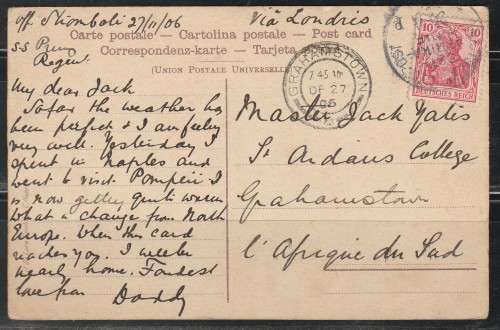 off Stromboli 27/11/06
Via Londres
SS Prinz
Regent
Carte postale – Cartolina postale – Post card
Correspondenz-karte – Tarjeta
(UNION POSTALE UNIVERSELLE)
My dear Jack
So far the weather has
been perfect & I am feeling
very well. Yesterday I
spent in Naples and
went to visit Pompeii I
is now getting quite warm
what a change from North
Europe. When this card
reaches you I will be
nearly home. Fondest
love from
Daddy
GRAHAMSTOWN
7.45
DE 27
06
10 10
DEUTSCHES REICH
Master Jack Yates
St Andrews College
Grahamstown
l'Afrique du Sud